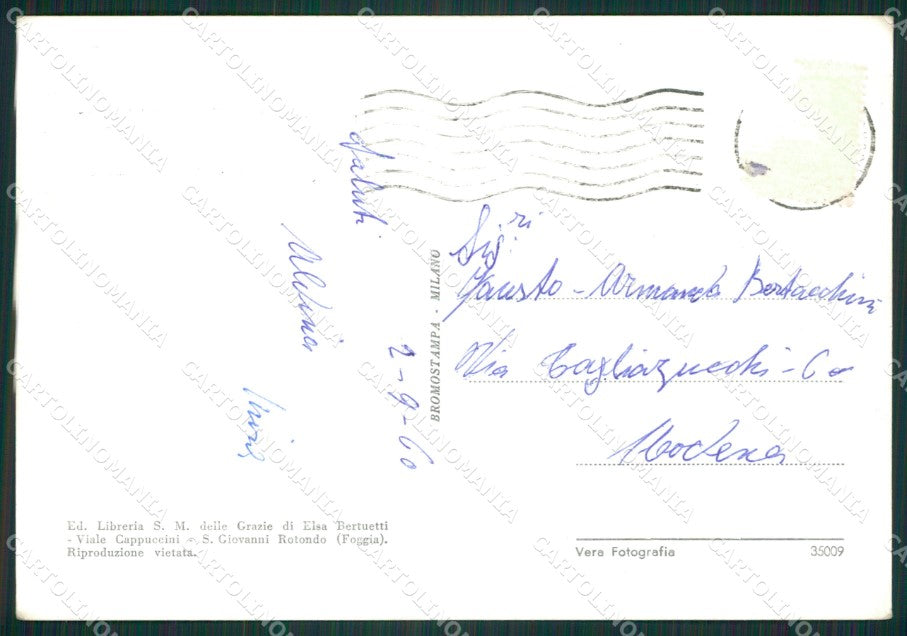 Saluti
Alvina
2-9-60
BROMOSTAMPA - MILANO
Sig.ri
Fausto - Armanda Bertacchini
Via Tagliazucchi - 60
Modena
Ed. Libreria S. M. delle Grazie di Elsa Bertuetti
- Viale Cappuccini - S. Giovanni Rotondo (Foggia).
Riproduzione vietata.
Vera Fotografia 35009
CARTOLINOMANIA